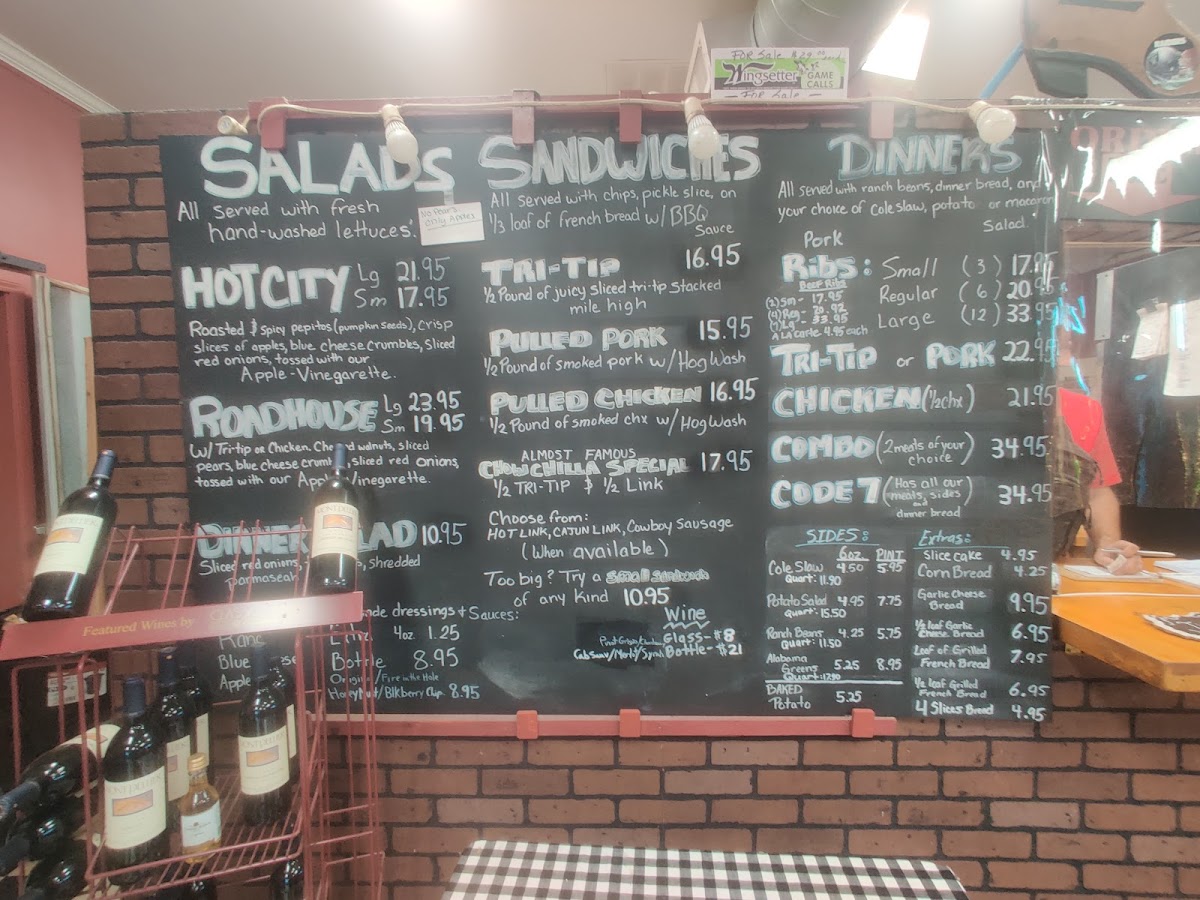 For Sale $29.00
Wingsetter GAME CALLS
For Sale
SALADS
All served with fresh
hand-washed lettuces.
No Pears
Only Apples
HOT CITY Lg 21.95
Sm 17.95
Roasted & spicy pepitos (pumpkin seeds), crisp
slices of apples, blue cheese crumbles, sliced
red onions, tossed with our
Apple-Vinegarette.
ROADHOUSE Lg 23.95
Sm 19.95
W/ Tri-tip or Chicken. walnuts, sliced
pears, blue cheese sliced red onions,
tossed with our Vinegarette.
DINNER 10.95
Sliced red onions, shredded
dressings & Sauces:
4oz. 1.25
Blue
Bottle 8.95
Original/Fire in the Hole
8.95
Featured Wines by
SANDWICHES
All served with chips, pickle slice, on
1/3 loaf of french bread w/ BBQ
Sauce
TRI-TIP 16.95
1/2 Pound of juicy sliced tri-tip stacked
mile high
PULLED PORK 15.95
1/2 Pound of smoked pork w/ Hog Wash
PULLED CHICKEN 16.95
1/2 Pound of smoked chx w/ Hog Wash
ALMOST FAMOUS
CHOWCHILLA SPECIAL 17.95
1/2 TRI-TIP & 1/2 Link
Choose from:
HOT LINK, CAJUN LINK, Cowboy Sausage
(When available)
Too big? Try a small sandwich
of any kind 10.95
Wine
Glass-$8
Bottle-$21
DINNERS
All served with ranch beans, dinner bread, and
your choice of Coleslaw, potato or macaroni
Salad.
Pork
RIBS: Small (3) 17.95
Regular (6) 20.95
Large (12) 33.95
Beef Ribs
(2) Sm - 17.95
(4) Reg - 20.92
(7) Lg - 33.95
A La Carte 4.95 each
TRI-TIP or PORK 22.95
CHICKEN (1/2 chx) 21.95
COMBO (2 meats of your choice) 34.95
CODE 7 (Has all our meats, sides and dinner bread) 34.95
SIDES:
6oz. PINT
Cole Slaw 4.50 5.95
Quart: 11.90
Potato Salad 4.95 7.75
Quart: 15.50
Ranch Beans 4.25 5.75
Quart: 11.50
Alabama
Greens 5.25 8.95
Quart: 17.90
BAKED
Potato 5.25
Extras:
Slice cake 4.95
Corn Bread 4.25
Garlic Cheese
Bread 9.95
1/2 loaf Garlic
Cheese Bread 6.95
Loaf of Grilled
French Bread 7.95
1/2 loaf Grilled
French Bread 6.95
4 Slices Bread 4.95